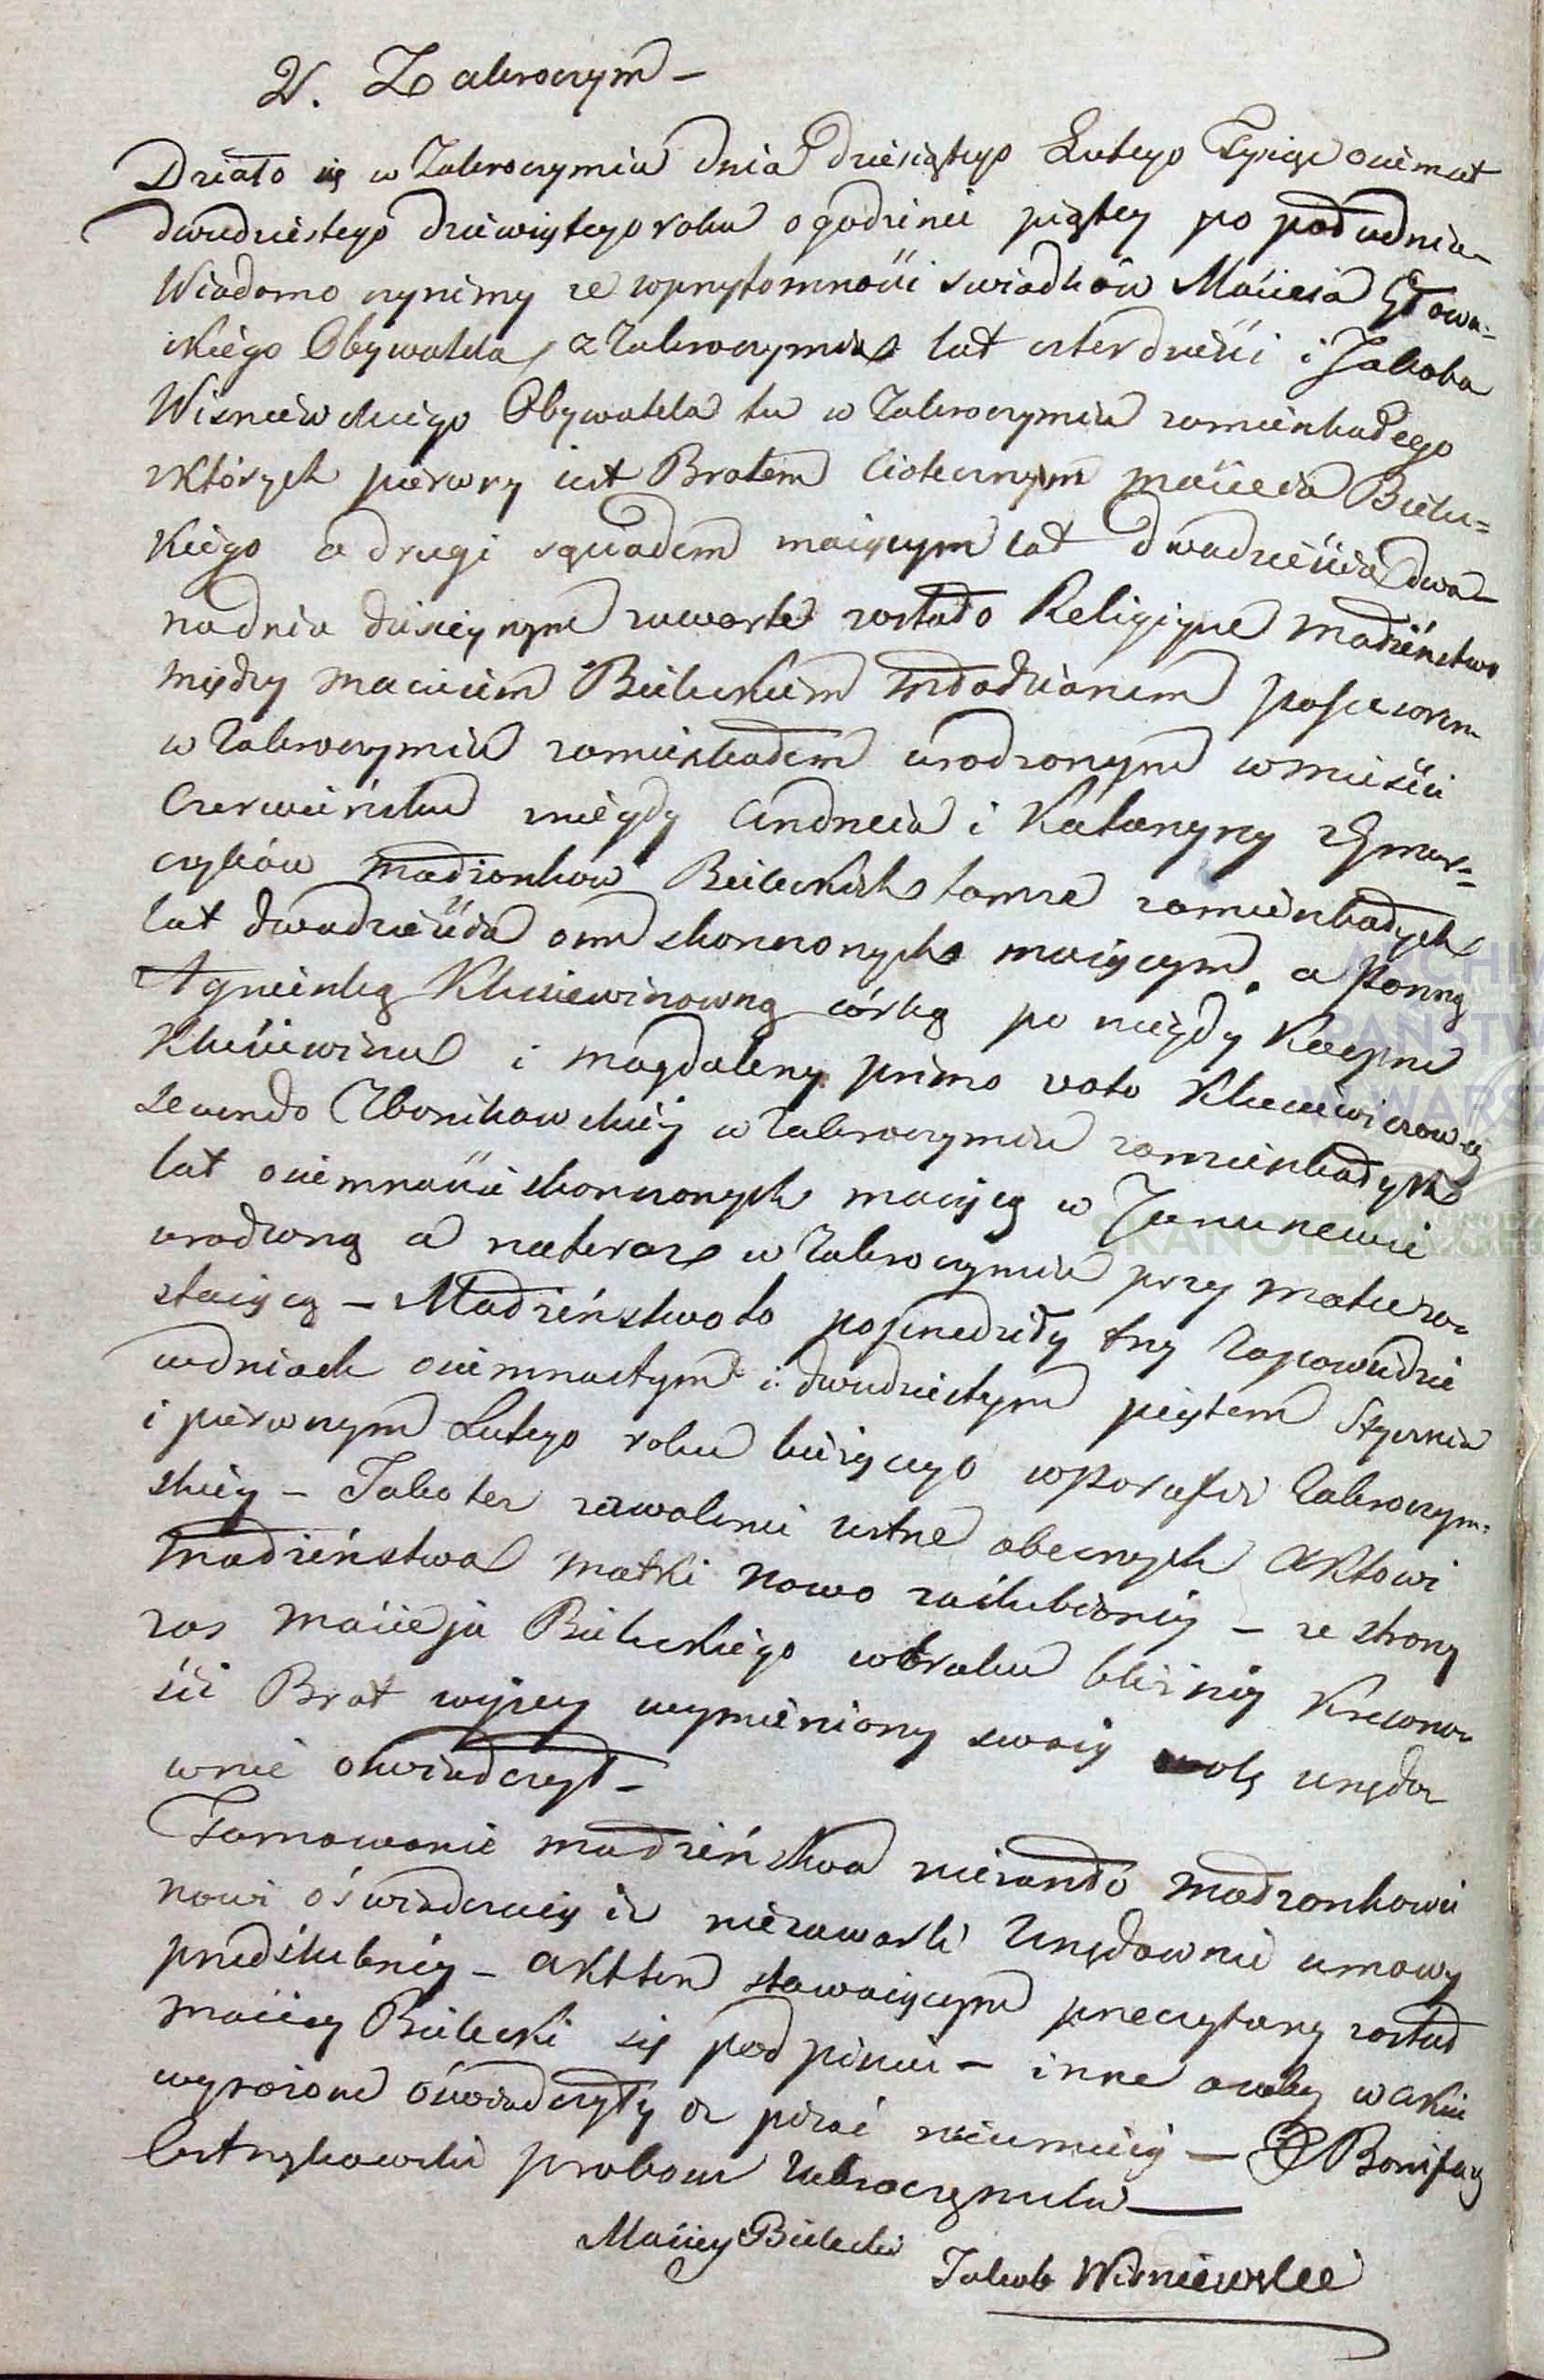 2. Zakroczym –
Działo się w Zakroczymiu dnia dziesiątego Lutego Tysiąc osimset
dwudziestego dziewiątego roku o godzinie piątey po południu
Wiadomo czynimy ze wprzytomności swiadków Macieia Głowa-
ckiego Obywatela z Zakroczymia lat czterdzieści i Jakoba
Wisniewskiego Obywatela tu w Zakroczymiu zamieszkałego
zktórych pierwszy iest Bratem Ciotecznym Macieia Bielec=
kiego a drugi sąsiadem maiącym lat dwadzieścia dwa
nadniu dzisieyszym zawarte zostało Religiyne małżeństwo
między Macieiem Bieleckim Młodzianem
w Zakroczymiu zamieszkałem urodzonym w mieście
Czerwińsku zniegdy Andrzeia i Katarzyny Zgmar=
czyków małżonkow Bieleckich tamze zamieszkałych
lat dwadzieścia osm skonczonych maiącym a Panną
Agnieszką Klusiewiczowną córką po niegdy Kacpru
Klusiewiczu i Magdaleny primo voto Klusiewiczowey
secundo Zbonikowskiey w Zakroczymiu zamieszkałych
lat osiemnaście skonczonych maiącą w
urodzoną a nateraz w Zakroczymiu przy matce zo-
staiącą – Małżeństwo to poprzedziły trzy Zapowiedzie
wdniach osiemnastym i dwudziestym piątem Stycznia
i pierwszym Lutego roku bieżącego wparafii Zakroczym-
skiey – Jako tez zezwolenie ustne obecnych Aktowi
małżeństwa matki nowo zaślubioney – ze strony
zas Macieja Bieleckiego wbraku bliżney Krewno-
ści Brat wyżey wymieniony swoię wolę urzędo
wnie oświadczył –
Tamowanie małżeństwa niezaszło małżonkowie
nowi oświadczaią iż niezawarli Urzędownie umowy
przedślubney – Akt ten stawaiącym przeczytany został
Maciey Bielecki się podpisuie – inne osoby w Akcie
wyrażone oświadczyły iż pisać nieumieią – X Bonifacy
Ostrzykowski proboszcz Zakroczymski
Maciey Bielecki
Jakub Wisniewskie
ARCHI
PAŃSTW
W WARSZ
SKANOTEKA